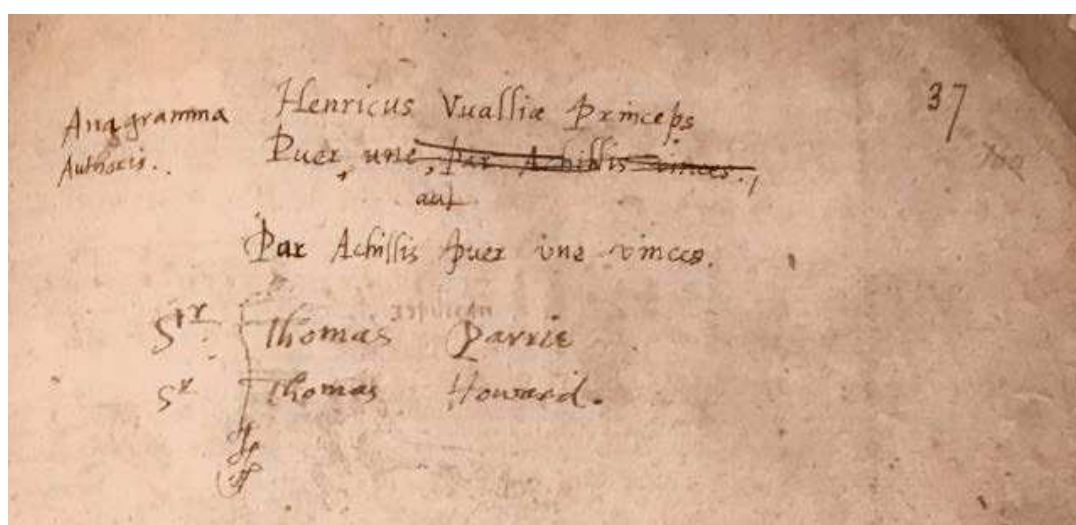 Anagramma Henricus Vualliæ Princeps 37
Authoris. Puer une, par Achillis vinces.
aut
Par Achillis puer une vinces.
Sir Thomas Parrie
Sr Thomas Howard.